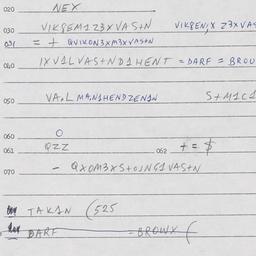 020 NEX
030 VIKGEM1Z3XVAS+N VIKGEN,X Z3XVAS
031 = + QVIKON3XM3XVAS+N
040 IXV1LVAS+ND1HENT = DARF = BROW
050 VA,L MAN1HENDZEN1N S+M1C1
060 O
061 QZZ 062 += $
070 - QXOM3XS+OJNG1VAS+N
TAK1N (525
DARF =BROWX (